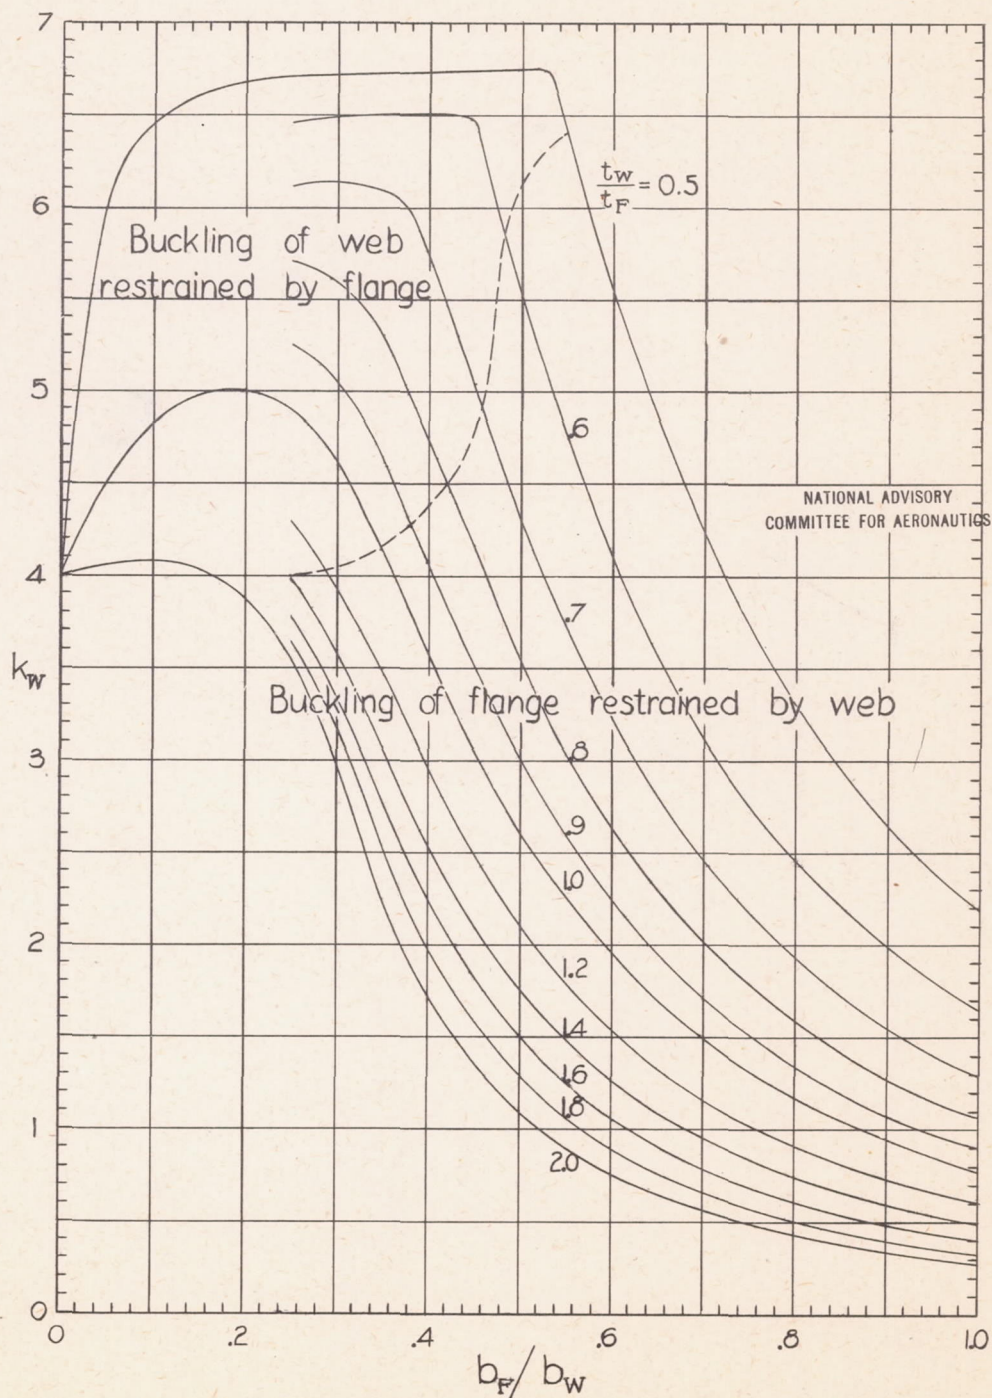 7
t_W/t_F = 0.5
6
Buckling of web
restrained by flange
5
.6
NATIONAL ADVISORY
COMMITTEE FOR AERONAUTICS
4
.7
k_W
Buckling of flange restrained by web
3
.8
.9
1.0
2
1.2
1.4
1.6
1.8
1
2.0
0
0 .2 .4 .6 .8 1.0
b_F/b_W